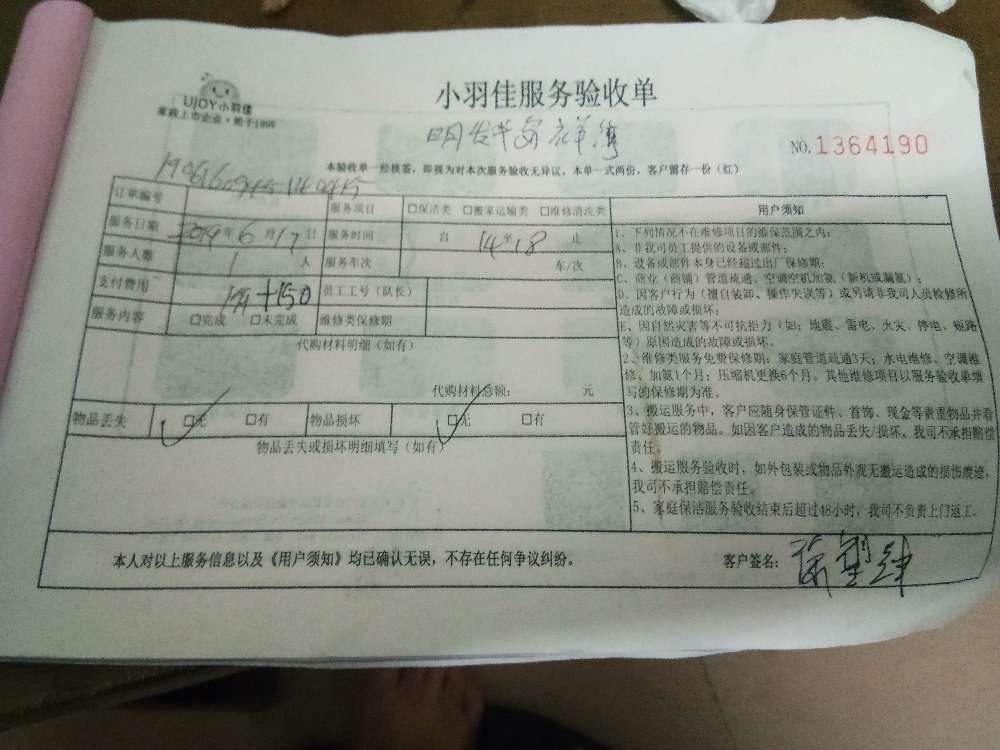 UJOY小羽佳
家政上市企业·始于1999
小羽佳服务验收单
NO.1364190
本验收单一经核签，即视为对本次服务验收无异议，本单一式两份，客户留存一份（红）
订单编号
服务项目 □保洁类 □搬家运输类 □维修清洗类
服务日期 2019年6月17日 服务时间 自 14 至 18 止
服务人数 1 人 服务车次 车/次
支付费用 +150 员工工号（队长）
服务内容 □完成 □未完成 维修类保修期
代购材料明细（如有）
代购材料总额： 元
物品丢失 □无 □有 物品损坏 □无 □有
物品丢失或损坏明细填写（如有）
用户须知
1、下列情况不在维修项目的维保范围之内：
A、非我司员工提供的设备或部件；
B、设备或部件本身已经超过出厂保修期；
C、商业（商铺）管道疏通、空调空机加氨（新机或漏氨）；
D、因客户行为（擅自装卸、操作失误等）或另请非我司人员检修所
造成的故障或损坏；
E、因自然灾害等不可抗拒力（如：地震、雷电、火灾、停电、短路
等）原因造成的故障或损坏。
2、维修类服务免费保修期：家庭管道疏通3天；水电维修、空调维
修、加氨1个月；压缩机更换6个月。其他维修项目以服务验收单填
写的保修期为准。
3、搬运服务中，客户应随身保管证件、首饰、现金等贵重物品并看
管好搬运的物品。如因客户造成的物品丢失/损坏，我司不承担赔偿
责任。
4、搬运服务验收时，如外包装或物品外观无搬运造成的损伤痕迹，
我司不承担赔偿责任。
5、家庭保洁服务验收结束后超过48小时，我司不负责上门返工。
本人对以上服务信息以及《用户须知》均已确认无误，不存在任何争议纠纷。
客户签名：